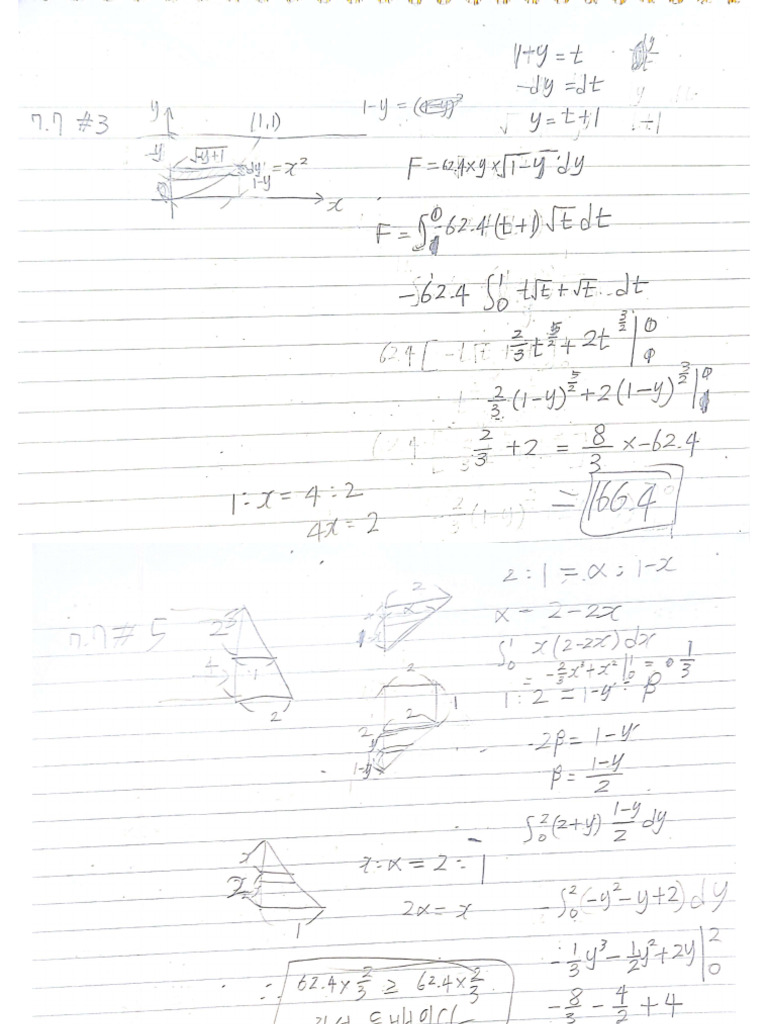 7.7 #3
y
(1,1)
-y
√-y+1
dy
= x²
1-y
x
1-y =
1+y = t
-dy = dt
y = t+1
F = 62.4×y×√1-y dy
F = ∫ -62.4(t+1)√t dt
-62.4 ∫₀¹ t√t+√t dt
2/3 t^5/2 + 2t^3/2 |
2/3 (1-y)^5/2 + 2(1-y)^3/2 |
2/3 + 2 = 8/3 × -62.4
1 : x = 4 : 2
= 166.4
4x = 2
7.7 # 5
2
1
2
2
α
2 : 1 = α : 1-x
α = 2-2x
∫₀¹ x(2-2x)dx
= -2/3 x³ + x² |₀¹ = 1/3
2
2
2
1
y
1-y
1 : 2 = 1-y : β
-2β = 1-y
β = 1-y/2
∫₀² (2+y) 1-y/2 dy
x
2
1
x : α = 2 : 1
2α = x
-∫₀² (-y²-y+2)dy
-1/3 y³ - 1/2 y² + 2y |₀²
-8/3 - 4/2 + 4
∴ 62.4×2/3 ≥ 62.4×2/3